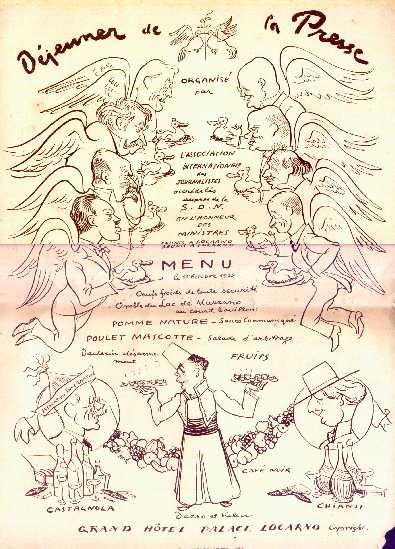 Déjeuner de la Presse
ORGANISÉ
par
L'ASSOCIATION
INTERNATIONALE
des
JOURNALISTES
accrédités
auprès de la
S.D.N.
EN L'HONNEUR
DES
MINISTRES
MENU
Oeufs froids de toute sécurité
du Lac de Muzzano
au court bouillon
POMME NATURE - Sauce Communiqué
POULET MASCOTTE - Salade d'arbitrage
FRUITS
CAFÉ NOIR
CASTAGNOLA
CHIANTI
GRAND HÔTEL PALACE LOCARNO Copyright.